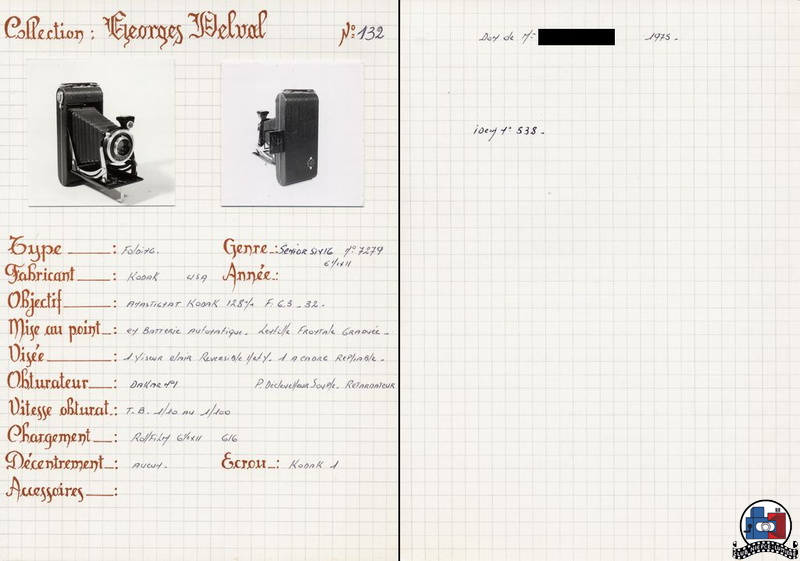 Collection : Georges Delval N° 132
Type : Folding. Genre : Senior Six 16 N° 7279
6½x11
Fabricant : Kodak USA Année :
Objectif : Anastigmat Kodak 128% F: 6.3 - 32.
Mise au point : en Batterie Automatique. Lentille Frontale Graduée.
Visée : 1 Viseur clair Reversible H et V. 1 à cadre Repliable.
Obturateur : Dakar N°1 P. Declencheur Souple. Retardateur
Vitesse obturat. : T. B. 1/10 au 1/100
Chargement : Rollfilm 6½x11 616
Décentrement : aucun. Ecrou : Kodak 1
Accessoires :
Don de Mr 1975.
idem N° 538.